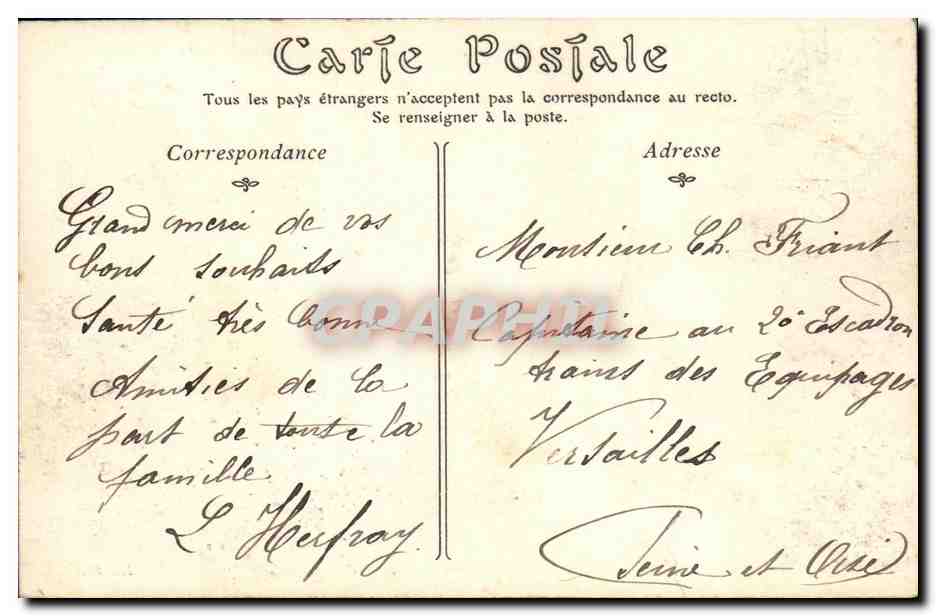 Carte Postale
Tous les pays étrangers n'acceptent pas la correspondance au recto.
Se renseigner à la poste.
Correspondance
Grand merci de vos
bons souhaits
Santé très bonne
Amitiés de la
part de toute la
famille
L Herfray
Adresse
Monsieur Ch. Friant
Capitaine au 2e Escadron
trains des Equipages
Versailles
Seine et Oise
CPAPHIL